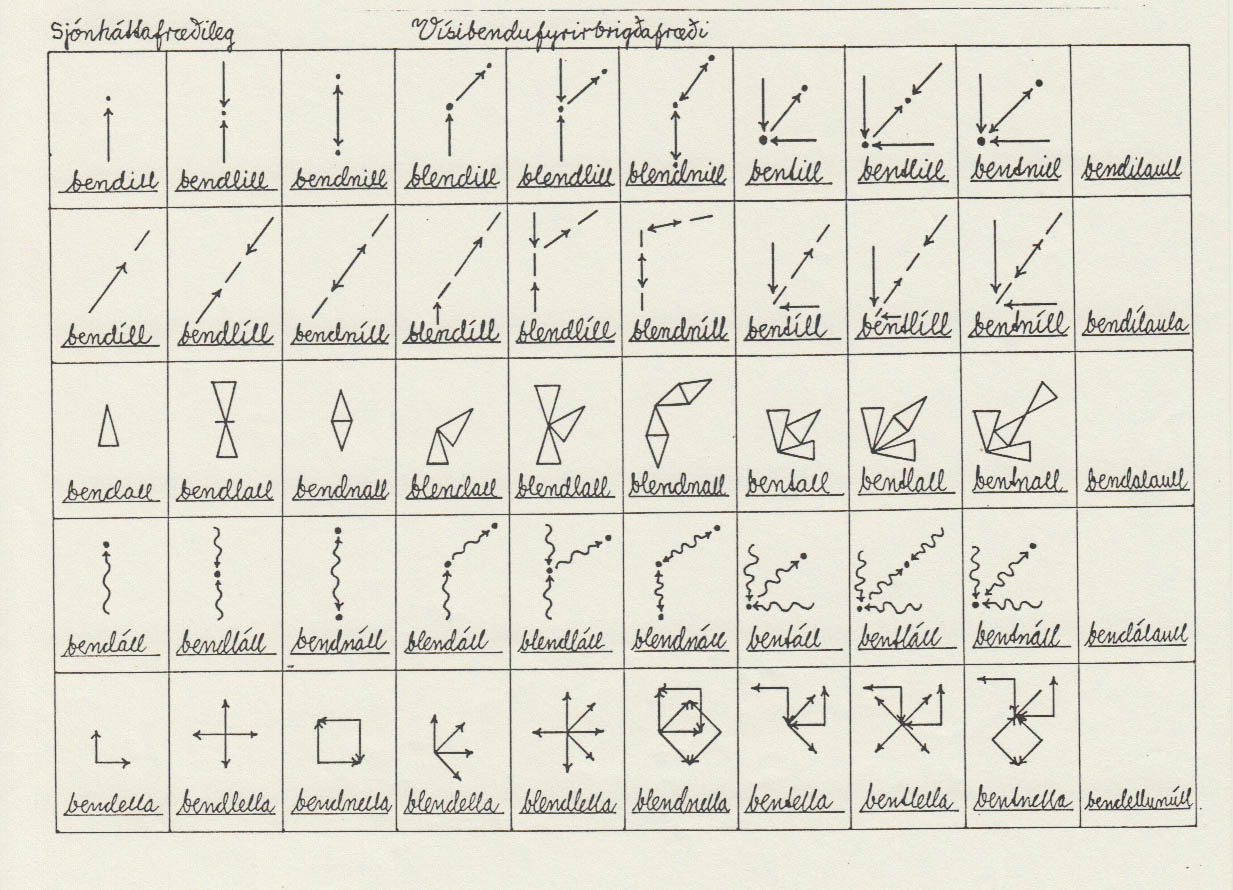 Sjónháttafræðileg Vísibendufyrirbrigðafræði
bendill bendlill bendnill blendill blendlill blendnill bentill bentlill bentnill bendilaull
bendíll bendlíll bendníll blendíll blendlíll blendníll bentíll bentlíll bentníll bendílaula
bendall bendlall bendnall blendall blendlall blendnall bentall bentlall bentnall bendalaull
bendáll bendláll bendnáll blendáll blendláll blendnáll bentáll bentláll bentnáll bendálaull
bendella bendlella bendnella blendella blendlella blendnella bentella bentlella bentnella bendellunúll